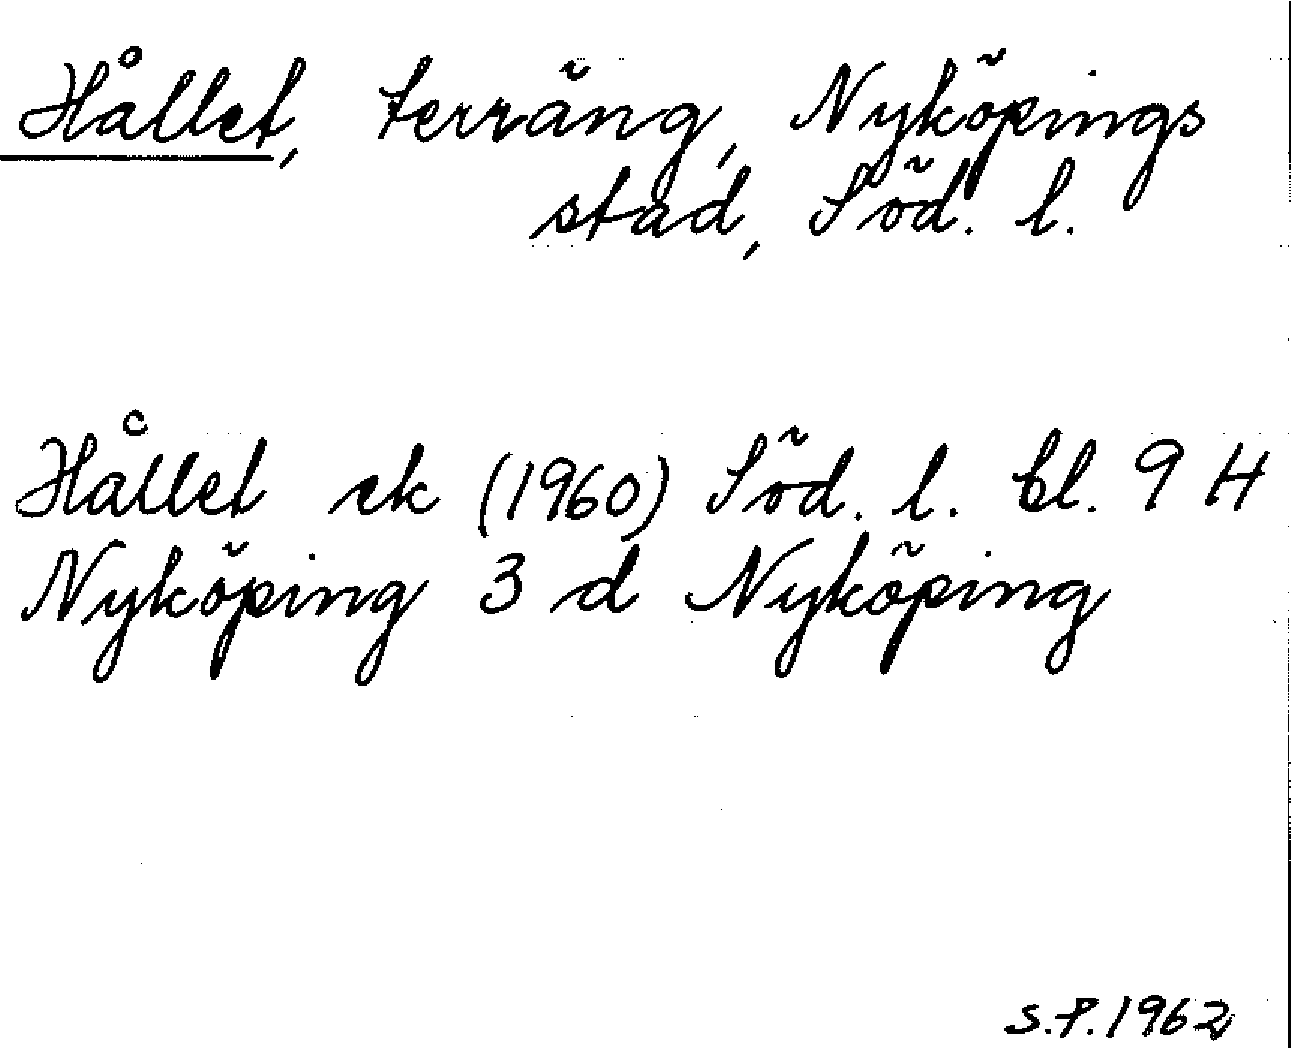 Hållet, terräng, Nyköpings
stad, Söd. l.
Hållet ek (1960) Söd. l. bl. 9 H
Nyköping 3 d Nyköping
S.P. 1962